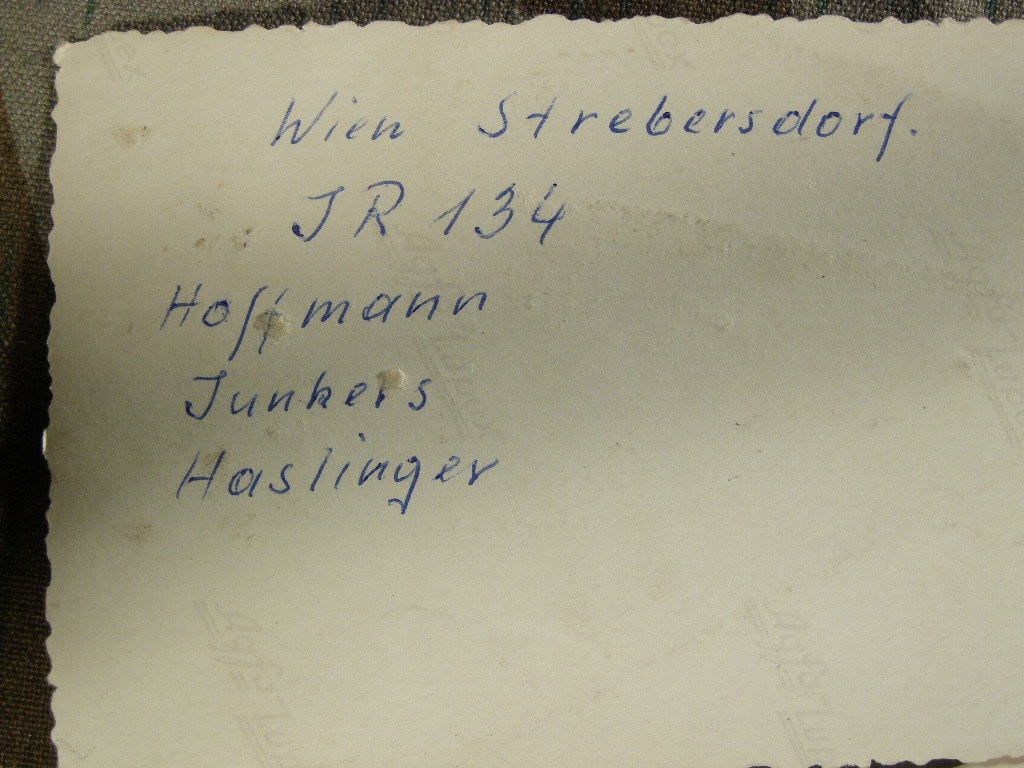 Wien Strebersdorf.
JR 134
Hoffmann
Junkers
Haslinger